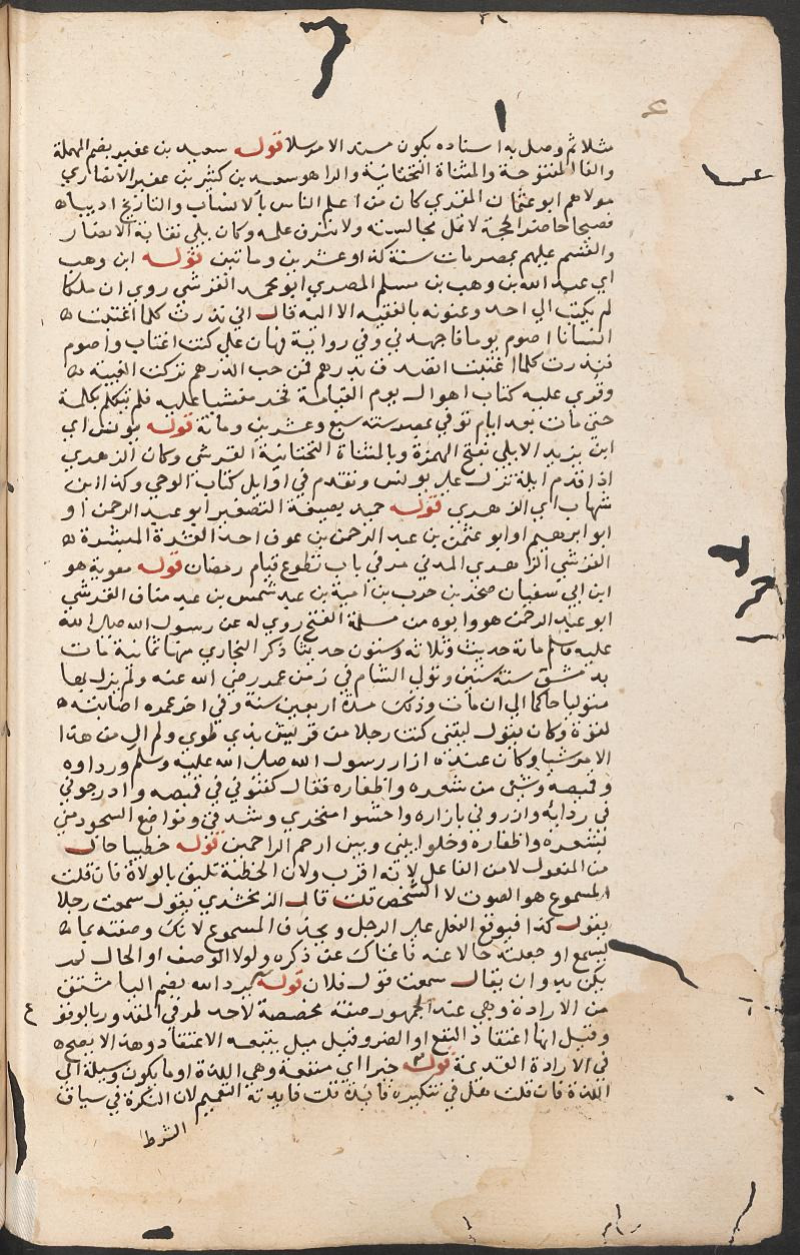 مثلا ثم وصل به اسناده يكون مسندا لا مرسلا قوله سعيد بن عفير بضم المهملة
والفا المفتوحة والمثناة التحتانية والرا هو سعيد بن كثير بن عفير الانصاري
مولاهم ابو عثمان المقدي كان من اعلم الناس بالانساب والتاريخ اديبا
فصيحا حاضر الحجة لا تمل مجالسته ولا ينزف علمه وكان يلي نقابة الانصار
والقسم عليهم بمصر مات سنة ست وعشرين وماتين قوله ابن وهب
اي عبد الله بن وهب بن مسلم المصري ابو محمد القرشي روي ان ملكا
لم يكتب الي احد وعنونه بالفقيه الا اليه قال اني نذرت كلما اغتبت
انسانا اصوم يوما فاجهدني وفي رواية فهان علي كنت اغتاب واصوم
فنذرت كلما اغتبت اتصدق بدرهم فمن حب الدرهم تركت الغيبة
وقري عليه كتاب اهوال يوم القيامة فخر مغشيا عليه فلم يتكلم بكلمة
حتي مات بعد ايام توفي بمصر سنة سبع وعشرين وماتة قوله يونس اي
ابن يزيد الايلي بفتح الهمزة وبالمثناة التحتانية القرشي وكان الزهري
اذا قدم ايلة نزل علي يونس وتقدم في اوايل كتاب الوحي وكذا ابن
شهاب اي الزهري قوله حميد بصيغة التصغير ابو عبد الرحمن او
ابو ابرهيم او ابو عثمن بن عبد الرحمن بن عوف احد العشرة المبشرة
القرشي الزهدي المدني مر في باب تطوع قيام رمضان قوله معوية هو
ابن ابي سفيان صخر بن حرب بن امية بن عبد شمس بن عبد مناف القرشي
ابو عبد الرحمن هو وابوه من مسلمة الفتح روي له عن رسول الله صلي الله
عليه وسلم ماتة حديث وثلاثه وستون حديثا ذكر البخاري منها ثمانية مات
بدمشق سنة ستين وتولي الشام في زمن عمر رضي الله عنه ولم يزل بها
متوليا حاكما الي ان مات وذلك مدة اربعين سنة وفي اخر عمره اصابته
لقوة وكان يقول ليتني كنت رجلا من قريش بذي طوي ولم ال من هذا
الامر شيا وكان عنده ازار رسول الله صلي الله عليه وسلم ورداوه
وقميصه وشي من شعره واظفاره فقال كفنوني في قميصه وادرجوني
في ردايه وازروني بازاره واحشوا منخري وشدقي ومواضع السجود مني
بشعره واظفاره وخلوا بيني وبين ارحم الراحمين قوله خطيبا حال
من المفعول لا من الفاعل لانه اقرب ولان الخطبة تليق بالولاة فان قلت
المسموع هو الصوت لا الشخص قلت قال الزمخشري يقول سمعت رجلا
يقول كذا فيوقع الفعل علي الرجل ويحذف المسموع لانك وصفته بما
يسمع او جعلته حالا عنه فاغناك عن ذكره ولولا الوصف او الحال لم
يكن بد وان يقال سمعت قول فلان قوله يرد الله بضم اليا مشتق
من الارادة وهي عند الجمهور صفة مخصصة لاحد طرفي المقدور بالوقوع
وقيل انها اعتقاد النفع او الضر وقيل ميل يتبعه الاعتقاد وهذا لا يصح
في الارادة القديمة قوله خيرا اي منفعة وهي اللذة او ما يكون وسيلة الي
اللذة فان قلت هل في تنكيره فايدة قلت فايدته التعميم لان النكرة في سياق
الشرط